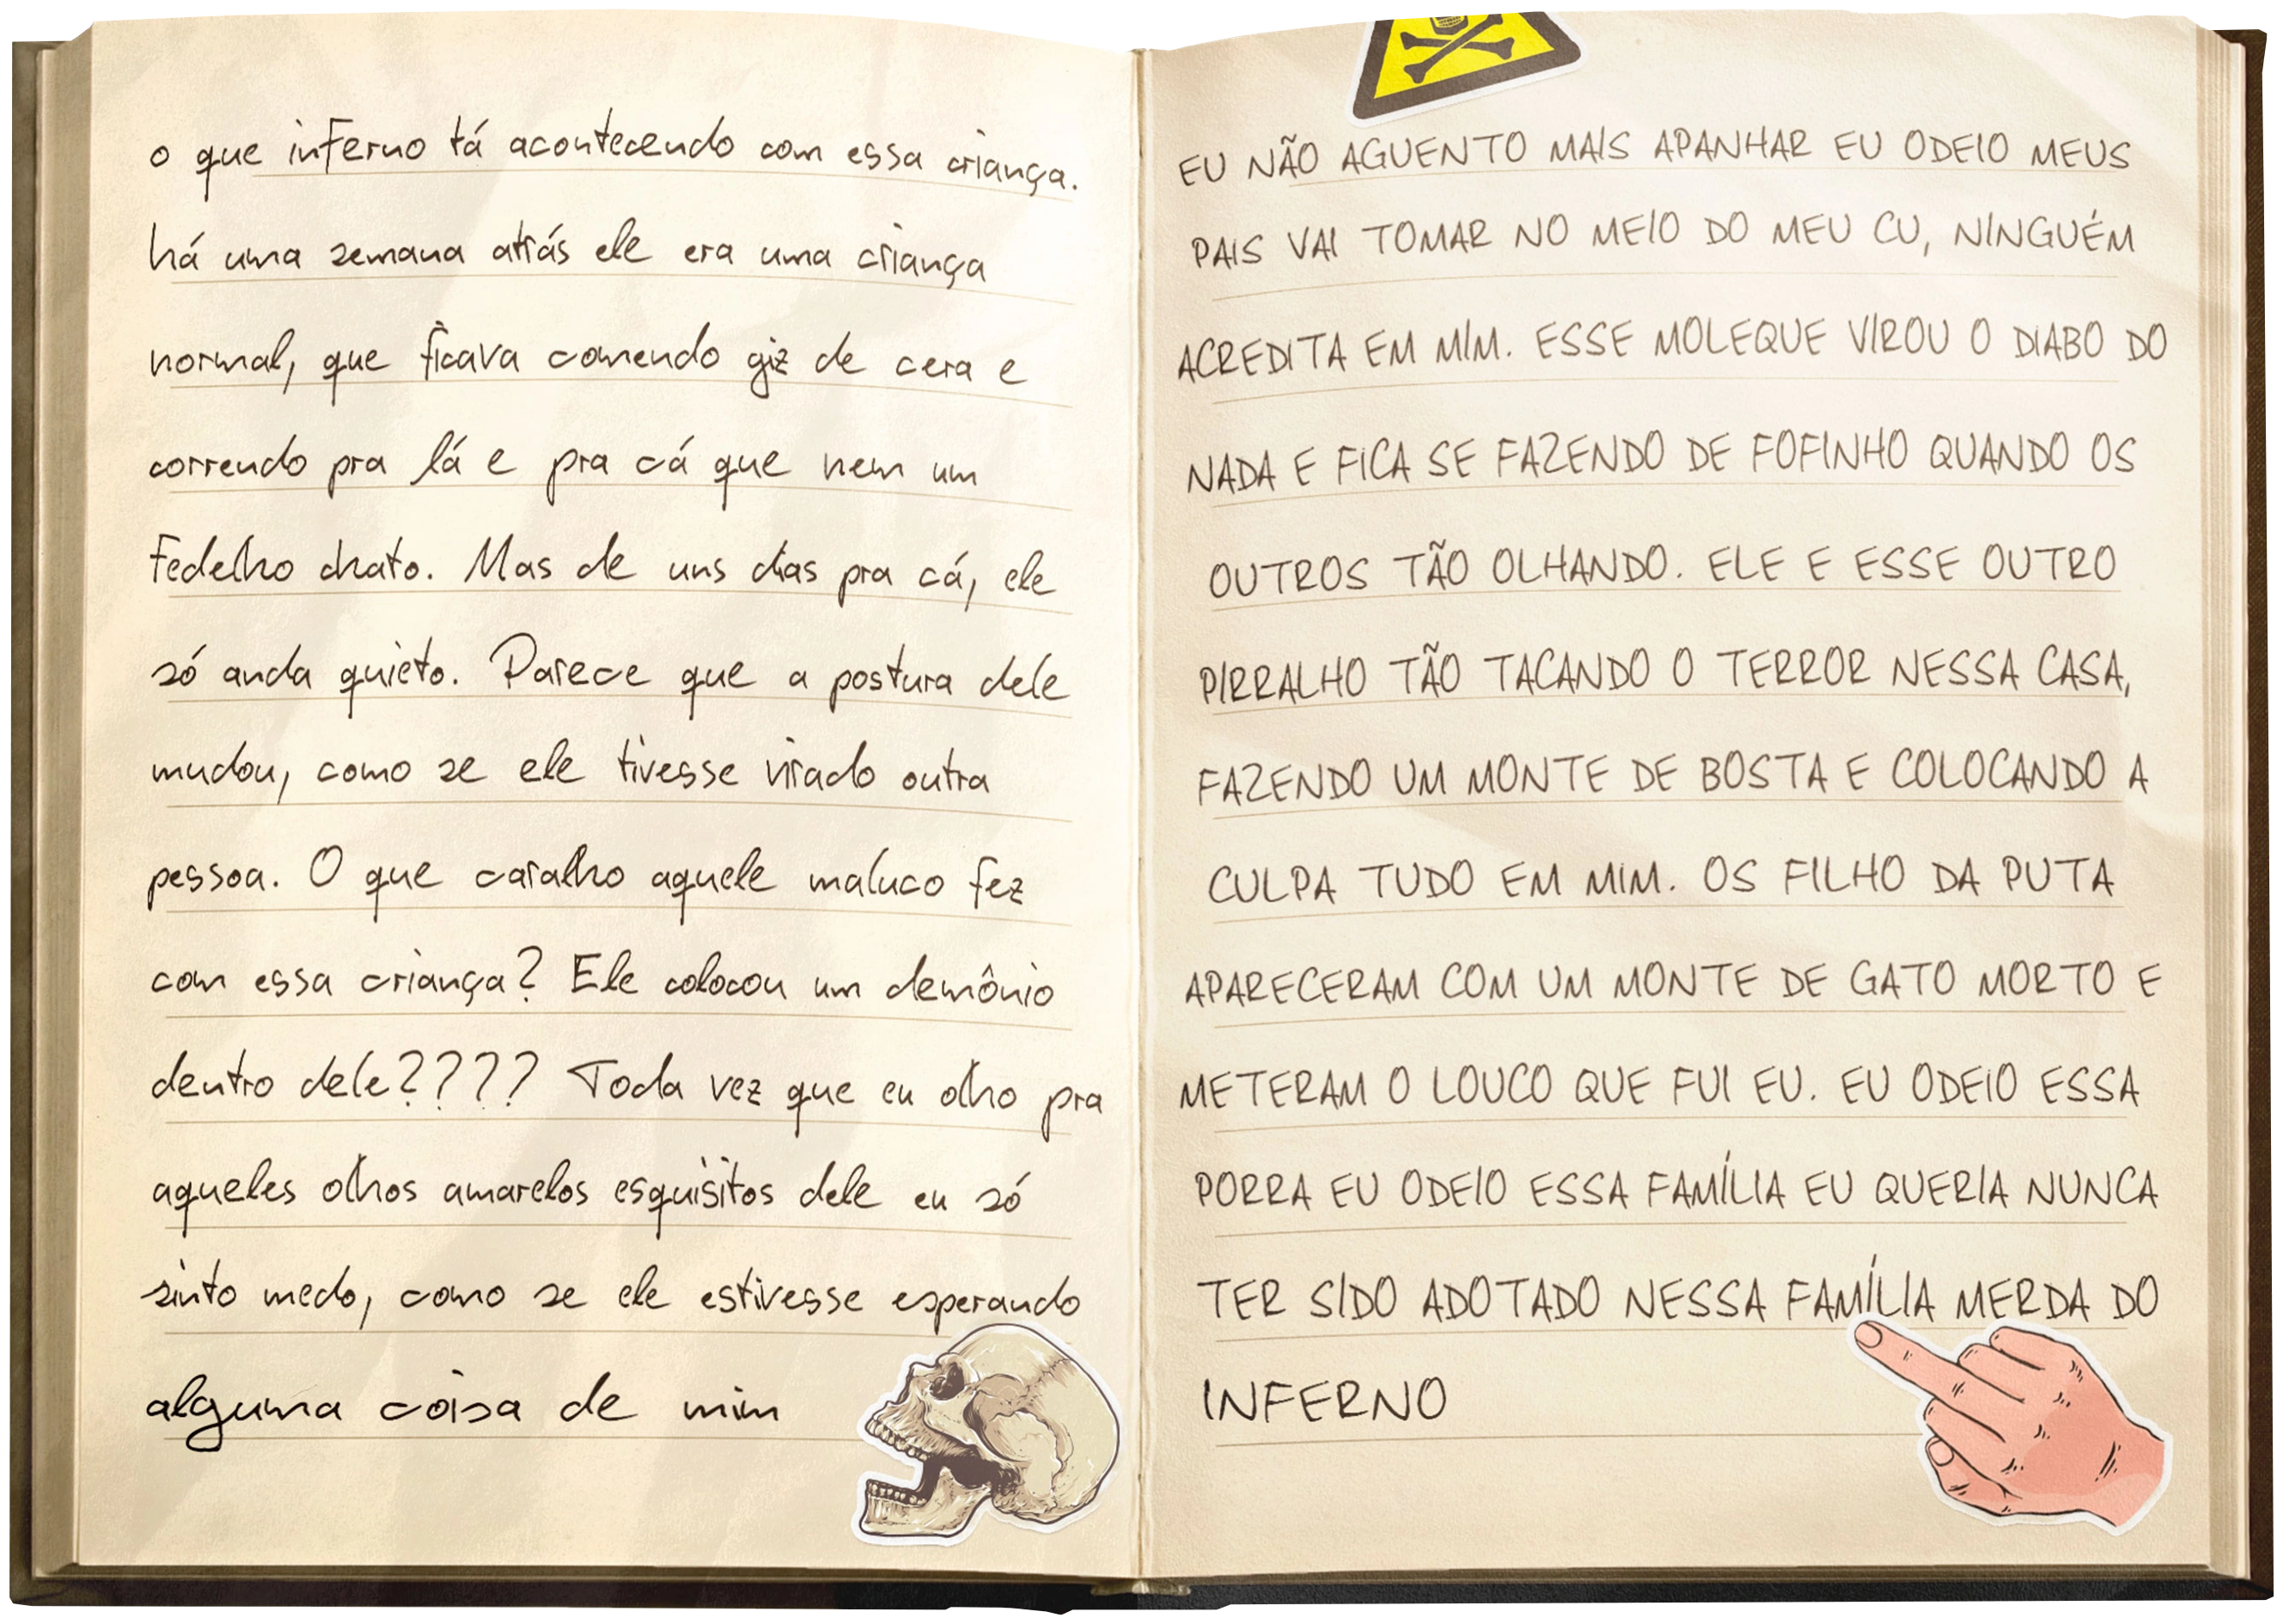 o que inferno tá acontecendo com essa criança.
há uma semana atrás ele era uma criança
normal, que ficava comendo giz de cera e
correndo pra lá e pra cá que nem um
fedelho chato. Mas de uns dias pra cá, ele
só anda quieto. Parece que a postura dele
mudou, como se ele tivesse virado outra
pessoa. O que caralho aquele maluco fez
com essa criança? Ele colocou um demônio
dentro dele???? Toda vez que eu olho pra
aqueles olhos amarelos esquisitos dele eu só
sinto medo, como se ele estivesse esperando
alguma coisa de mim
EU NÃO AGUENTO MAIS APANHAR EU ODEIO MEUS
PAIS VAI TOMAR NO MEIO DO MEU CU, NINGUÉM
ACREDITA EM MIM. ESSE MOLEQUE VIROU O DIABO DO
NADA E FICA SE FAZENDO DE FOFINHO QUANDO OS
OUTROS TÃO OLHANDO. ELE E ESSE OUTRO
PIRRALHO TÃO TACANDO O TERROR NESSA CASA,
FAZENDO UM MONTE DE BOSTA E COLOCANDO A
CULPA TUDO EM MIM. OS FILHO DA PUTA
APARECERAM COM UM MONTE DE GATO MORTO E
METERAM O LOUCO QUE FUI EU. EU ODEIO ESSA
PORRA EU ODEIO ESSA FAMÍLIA EU QUERIA NUNCA
TER SIDO ADOTADO NESSA FAMÍLIA MERDA DO
INFERNO